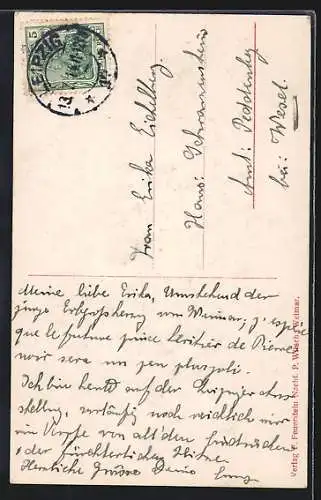 5
LEIPZIG
13
Frau Erika
Haus: Schwanenstein
Amt: Peddenberg
bei: Wesel.
Meine liebe Erika, Umstehend der
junge Erbgroßherzog von Weimar, j'espère
que le future prince héritier de
noir sera un peu plus joli.
Ich bin heute auf der Leipziger Aus-
stellung, vorläufig noch reichlich wirr
im Kopfe von all' den Eindrücken
u. der fürchterlichen Hitze.
Herzliche Grüsse Deine
Verlag F. Feuerstein Nachf. P. Wüsten Weimar.